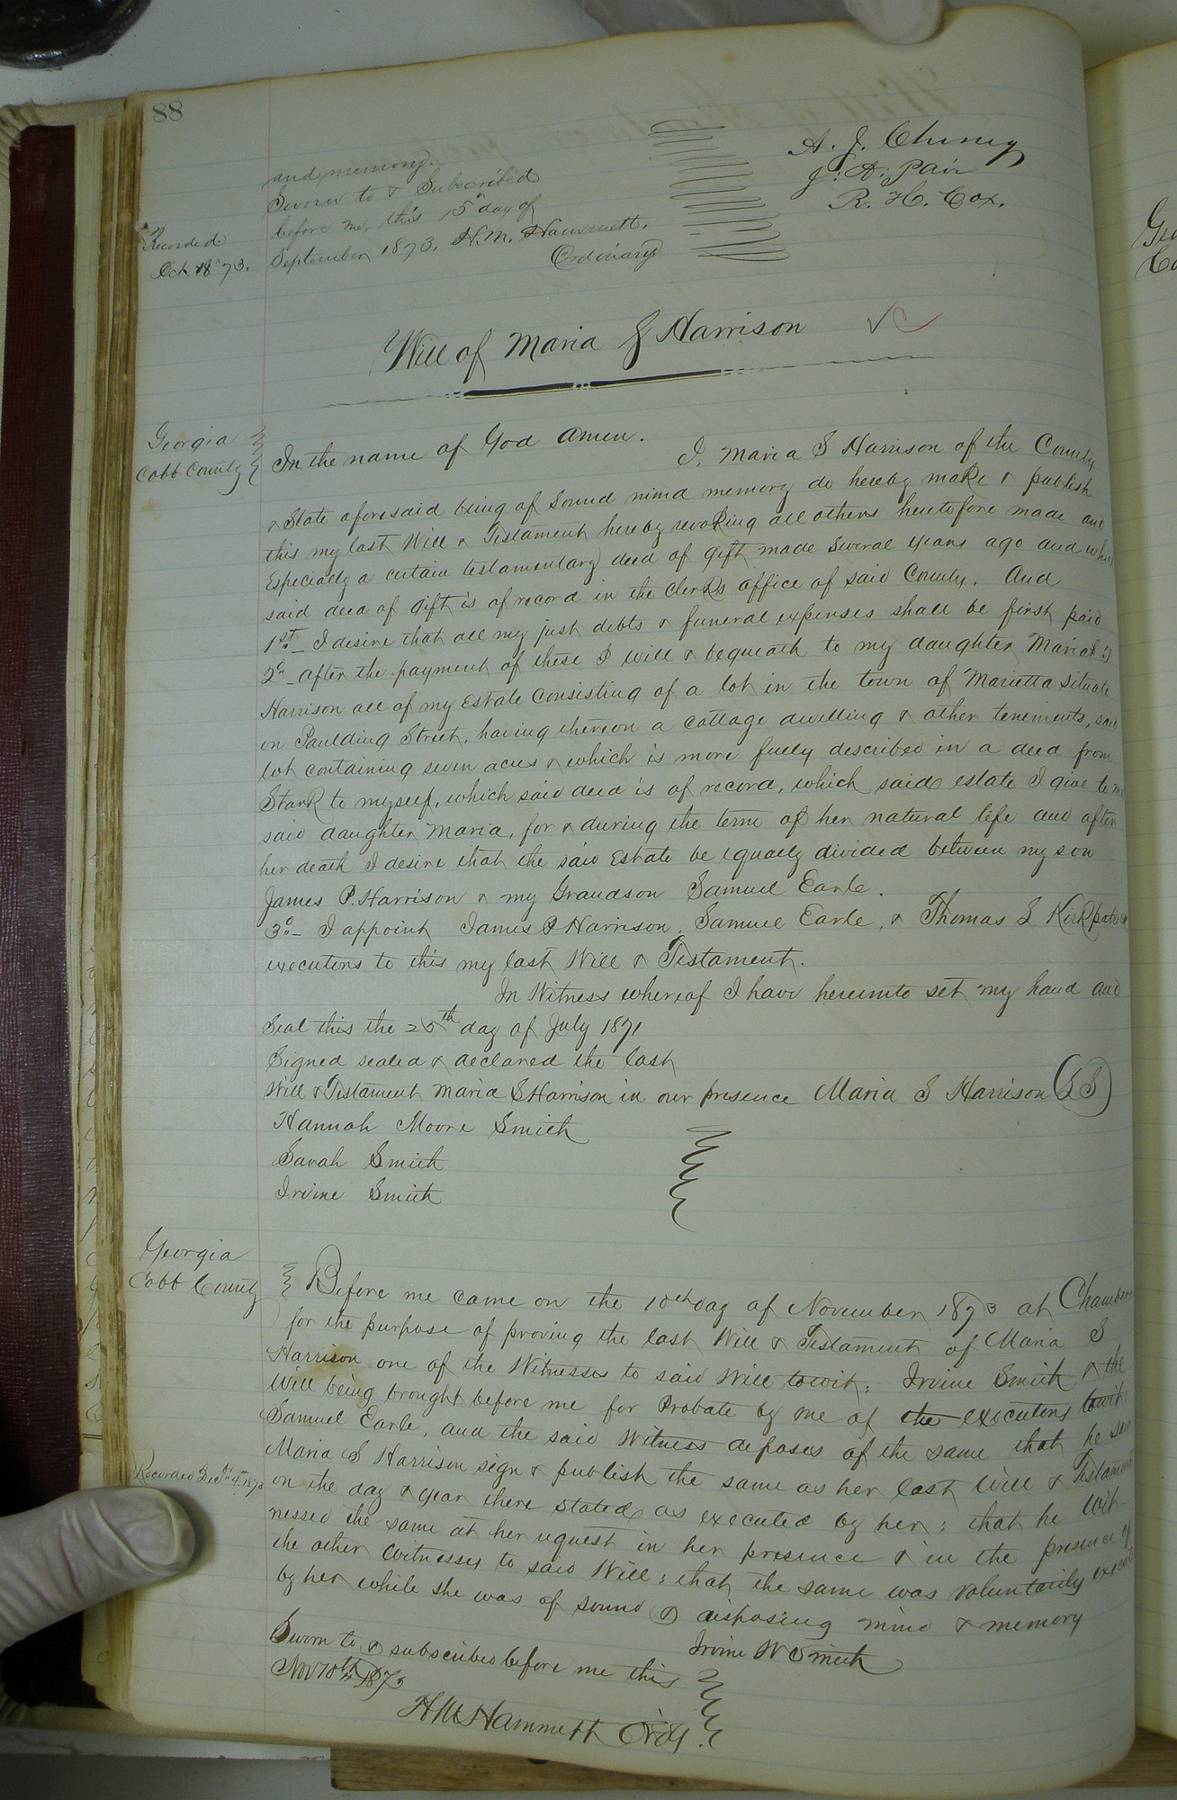 88
and memory.
Sworn to & Subscribed
before me, this 15th day of
September 1873. H. M. Hammett.
Ordinary
A. J. Cheney
J. A. Pair
R. H. Cox.
Recorded
Oct 18th 73.
Will of Maria S Harrison
Georgia
Cobb County
In the name of God Amen.
I, Maria S Harrison of the County
& State aforesaid being of Sound mind memory do hereby make & publish
this my last Will & Testament hereby revoking all others heretofore made and
Especially a certain testamentary deed of gift made several years ago and which
said deed of gift is of record in the Clerks office of said County. And
1st_ I desire that all my just debts & funeral expenses shall be first paid
2d_ after the payment of these I will & bequeath to my daughter Maria
Harrison all of my Estate consisting of a lot in the town of Marietta situate
on Paulding Street, having thereon a cottage dwelling & other tenements, said
lot containing seven acres & which is more fully described in a deed from
Stark to myself, which said deed is of record, which said estate I give to my
said daughter Maria, for & during the term of her natural life and after
her death I desire that the said Estate be equally divided between my son
James P. Harrison & my Grandson Samuel Earle.
3d_ I appoint James P Harrison, Samuel Earle, & Thomas S Kirkpatrick
executors to this my last Will & Testament.
In Witness whereof I have hereunto set my hand and
Seal this the 25th day of July 1871
Signed sealed & declared the last
Will & Testament Maria S Harrison in our presence Maria S Harrison (LS)
Hannah Moore Smith
Sarah Smith
Irvine Smith
Georgia
Cobb County
Before me came on the 10th day of November 1873 at Chambers
for the purpose of proving the last Will & Testament of Maria S
Harrison one of the Witnesses to said Will towit; Irvine Smith & the
Will being brought before me for Probate by one of the executors towit:
Samuel Earle, and the said Witness deposes of the same that he saw
Maria S Harrison sign & publish the same as her last Will & Testament
Recorded Decr 4th 1873
on the day & year there stated as executed by her; that he wit-
nessed the same at her request in her presence & in the presence of
the other Witnesses to said Will; that the same was voluntarily executed
by her while she was of sound & disposing mind & memory
Irvine W Smith
Sworn to & subscribed before me this
Nov 10th 1873
H M Hammett Ordy.
Geo
Co